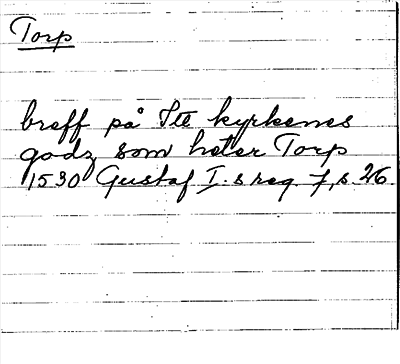 Torp
breff på Itt kyrkenes
godz som heter Torp
1530 Gustaf I.s reg. 7, s. 26.